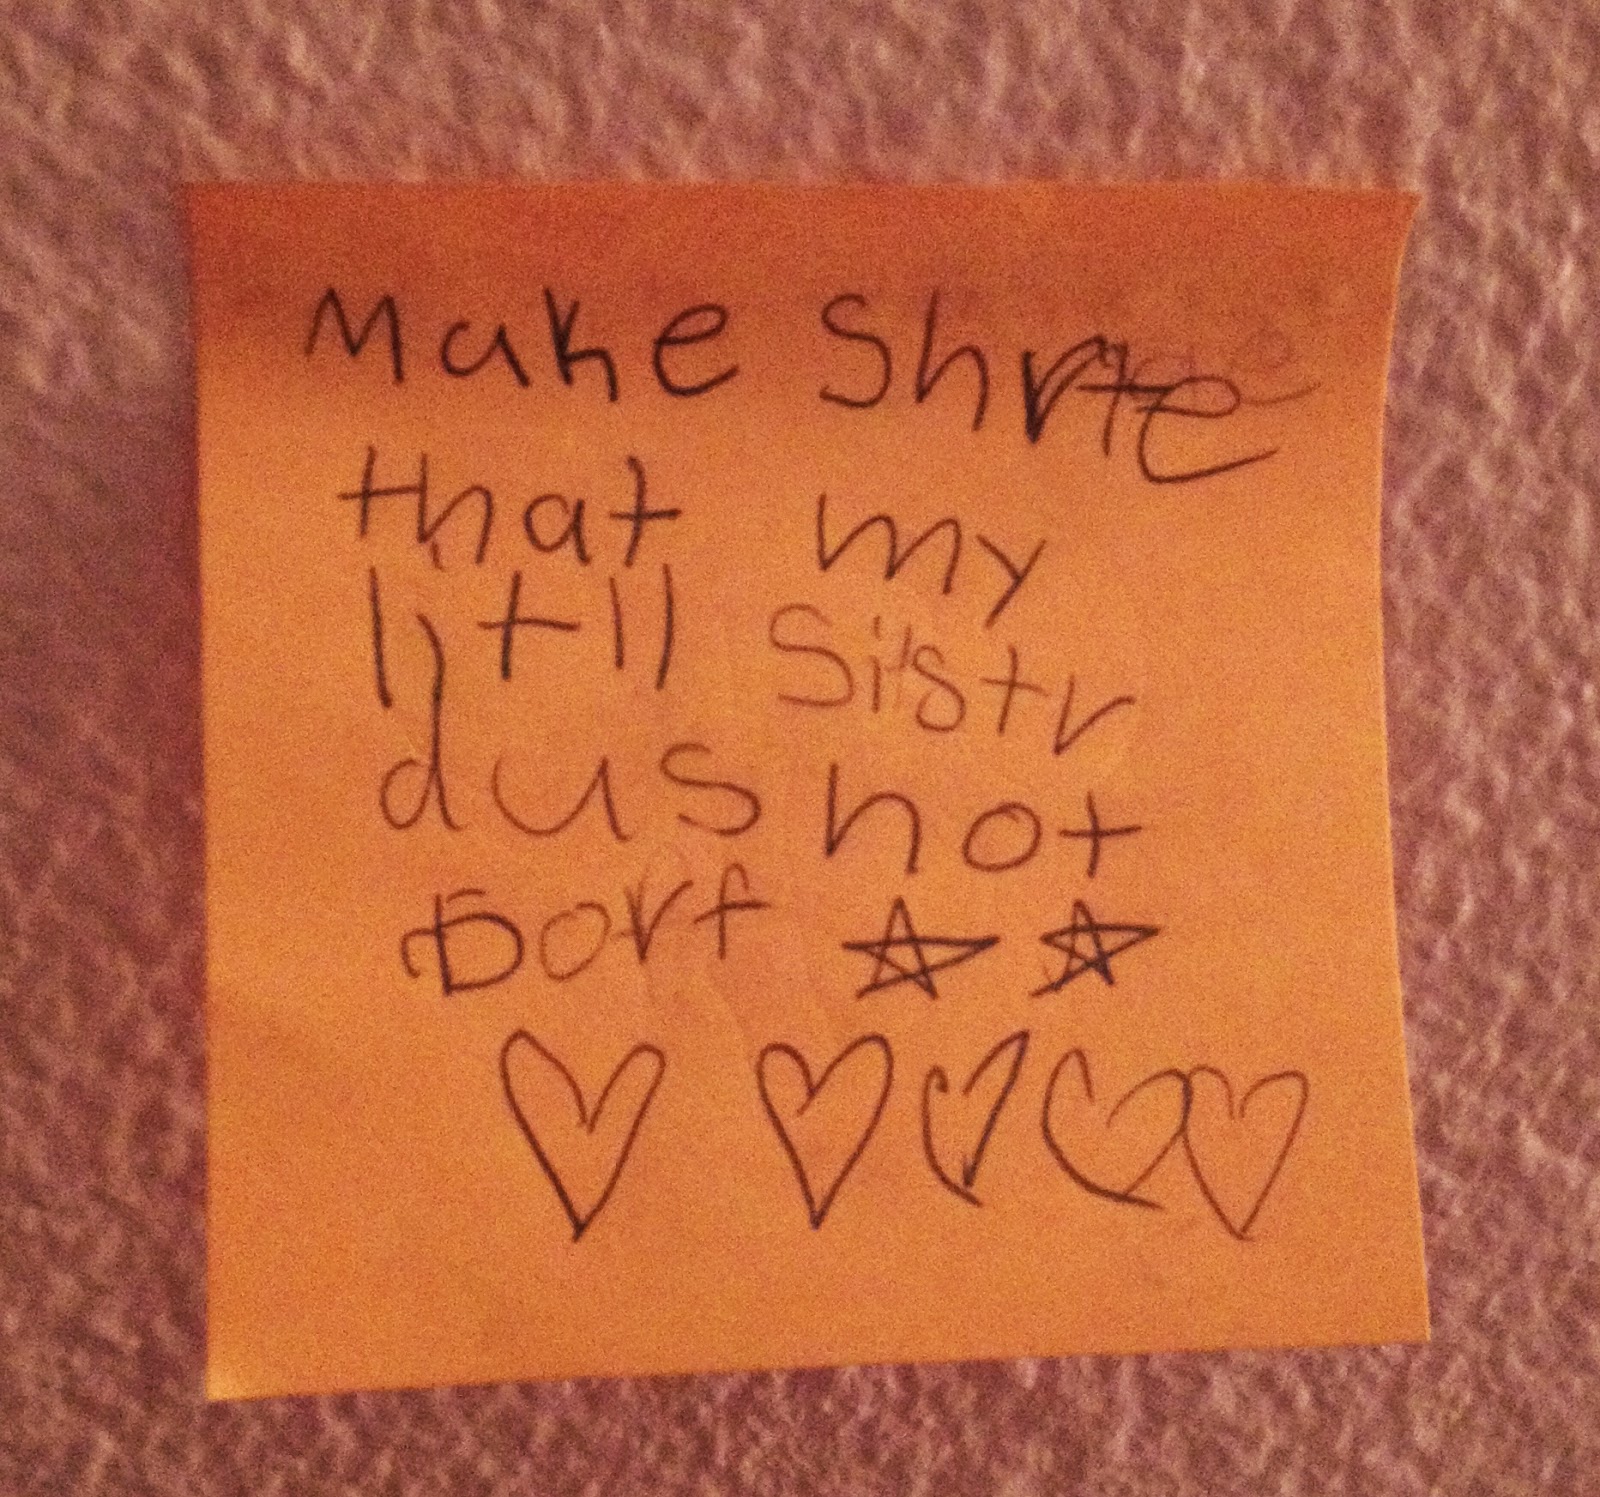 Make Shre
that my
litll Sistr
dus not
borf